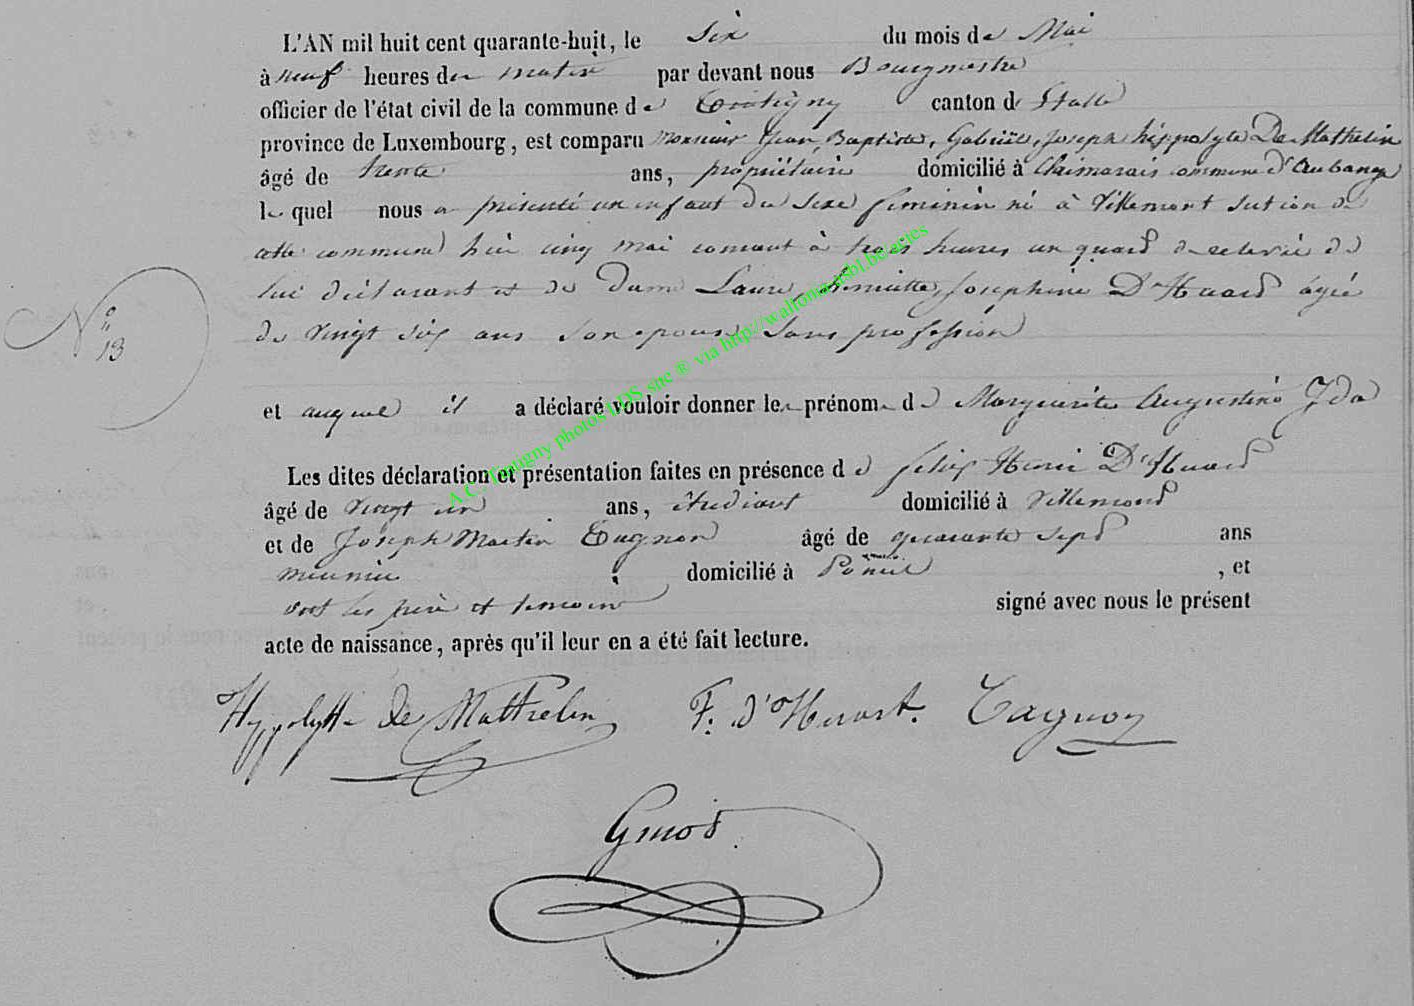 L'AN mil huit cent quarante-huit, le Six du mois de Mai
à neuf heures du matin par devant nous Bourgmestre
officier de l'état civil de la commune de Tintigny canton d'Etalle
province de Luxembourg, est comparu monsieur Jean, Baptiste, Gabriël, Joseph hippolyte De Mathelin
âgé de trente ans, propriétaire domicilié à Clairmarais commune d'Aubange
lequel nous a présenté un enfant du sexe féminin né à Villemont section de
cette commune hier cinq mai courant à trois heures un quart de relevée de
lui déclarant et de Dame Laure, Henriette, Josephine D'Huard agée
de vingt six ans son epouse sans profession
N° 13
et auquel il a déclaré vouloir donner les prénoms de Marguerite Augustine Ida
Les dites déclaration et présentation faites en présence de felix Henri D'Huard
âgé de vingt un ans, étudiant domicilié à Villemont
et de Joseph Martin Tagnon âgé de quarante sept ans
meunier domicilié à , et
ont les père et temoins signé avec nous le présent
acte de naissance, après qu'il leur en a été fait lecture.
Hyppolytte de Mathelin F. d'Huart. Tagnon
A.C. Tintigny photos LDS site ® via http://wallonia.asbl.be/actes